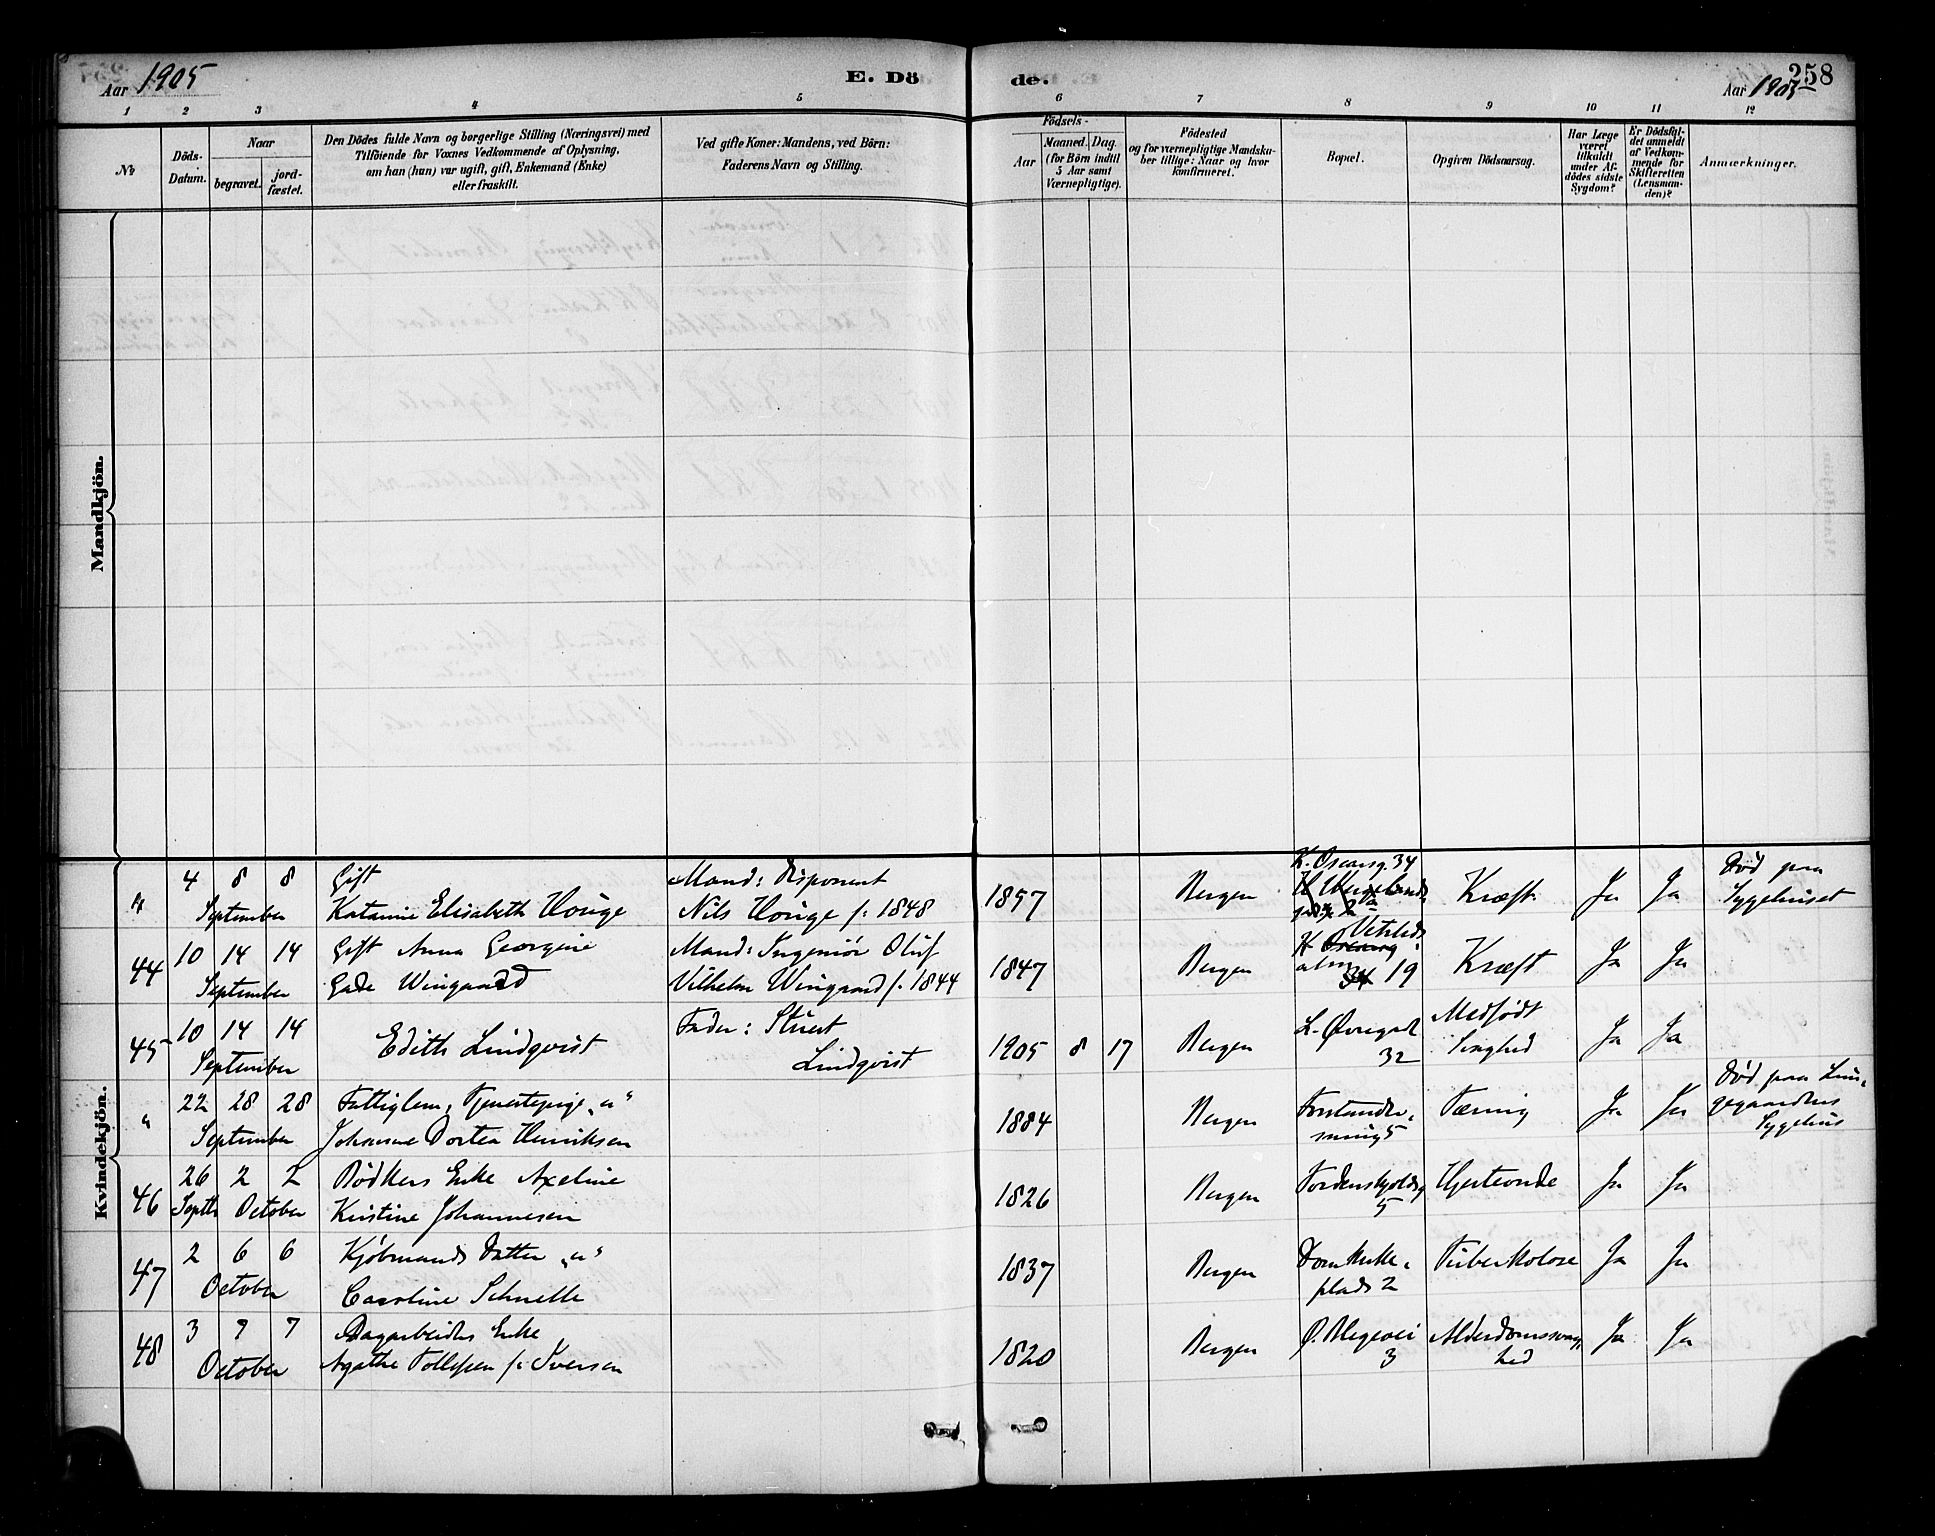 Aar 1905
E. Dö
de.
258
Aar 1905
1 2 3 4 5 6 7 8 9 10 11 12
No
Döds-
Datum.
Naar
begravet.
jord-
fæstet.
Den Dödes fulde Navn og borgerlige Stilling (Næringsvei) med
Tilföiende for Voxnes Vedkommende af Oplysning,
om han (hun) var ugift, gift, Enkemand (Enke)
eller fraskilt.
Ved gifte Koner: Mandens, ved Börn:
Faderens Navn og Stilling.
Födsels-
Aar
Maaned.
Dag.
(for Börn indtil
5 Aar samt
Værnepligtige).
Födested
og for værnepligtige Mandska-
ber tillige: Naar og hvor
konfirmeret.
Bopæl.
Opgiven Dödsaarsag.
Har Læge
været
tilkaldt
under Af-
dödes sidste
Sygdom?
Er Dödsfal-
det anmeldt
af Vedkom-
mende for
Skifteretten
(Lensman-
den)?
Anmærkninger.
Mandkjön.
Kvindekjön.
" 4 8 8 September
Gift
Katarine Elisabeth Houge
Mand: Disponent
Nils Houge f. 1848
1857
Bergen
K. Oscarsg 34
Kræft
Ja Ja
Död paa
Sygehuset
44 10 14 14 September
Gift Anna Georgine
Gade Wingaard
Mand: Ingeniör Oluf
Vilhelm Wingaard f. 1844
1847
Bergen
Vetrlids
alm 19
Kræft
Ja Ja
45 10 14 14 September
Edith Lindqvist
Fader: Stuert
Lindqvist
1905 8 17
Bergen
L. Övregade
32
Medfödt
Svaghed
Ja Ja
" 22 28 28 September
Fattiglem, Tjenestepige "u"
Johanne Dortea Henriksen
1884
Bergen
Forstander-
smug 5
Tæring
Ja Ja
Död paa Lun-
gegaardens
Sygehus
46 26 Septb 2 2 October
Bödkers Enke Axeline
Kristine Johannesen
1826
Bergen
Tordenskjoldsg
5
Hjerteonde
Ja Ja
47 2 6 6 October
Kjöbmands Datter "u"
Caroline Schnelle
1837
Bergen
Domkirke-
plads 2
Tuberkolose
Ja Ja
48 3 7 7 October
Dagarbeiders Enke
Agathe Tollefsen f. Iversen
1820
Bergen
Ö. Blegevei
3
Alderdomssvag-
hed
Ja Ja